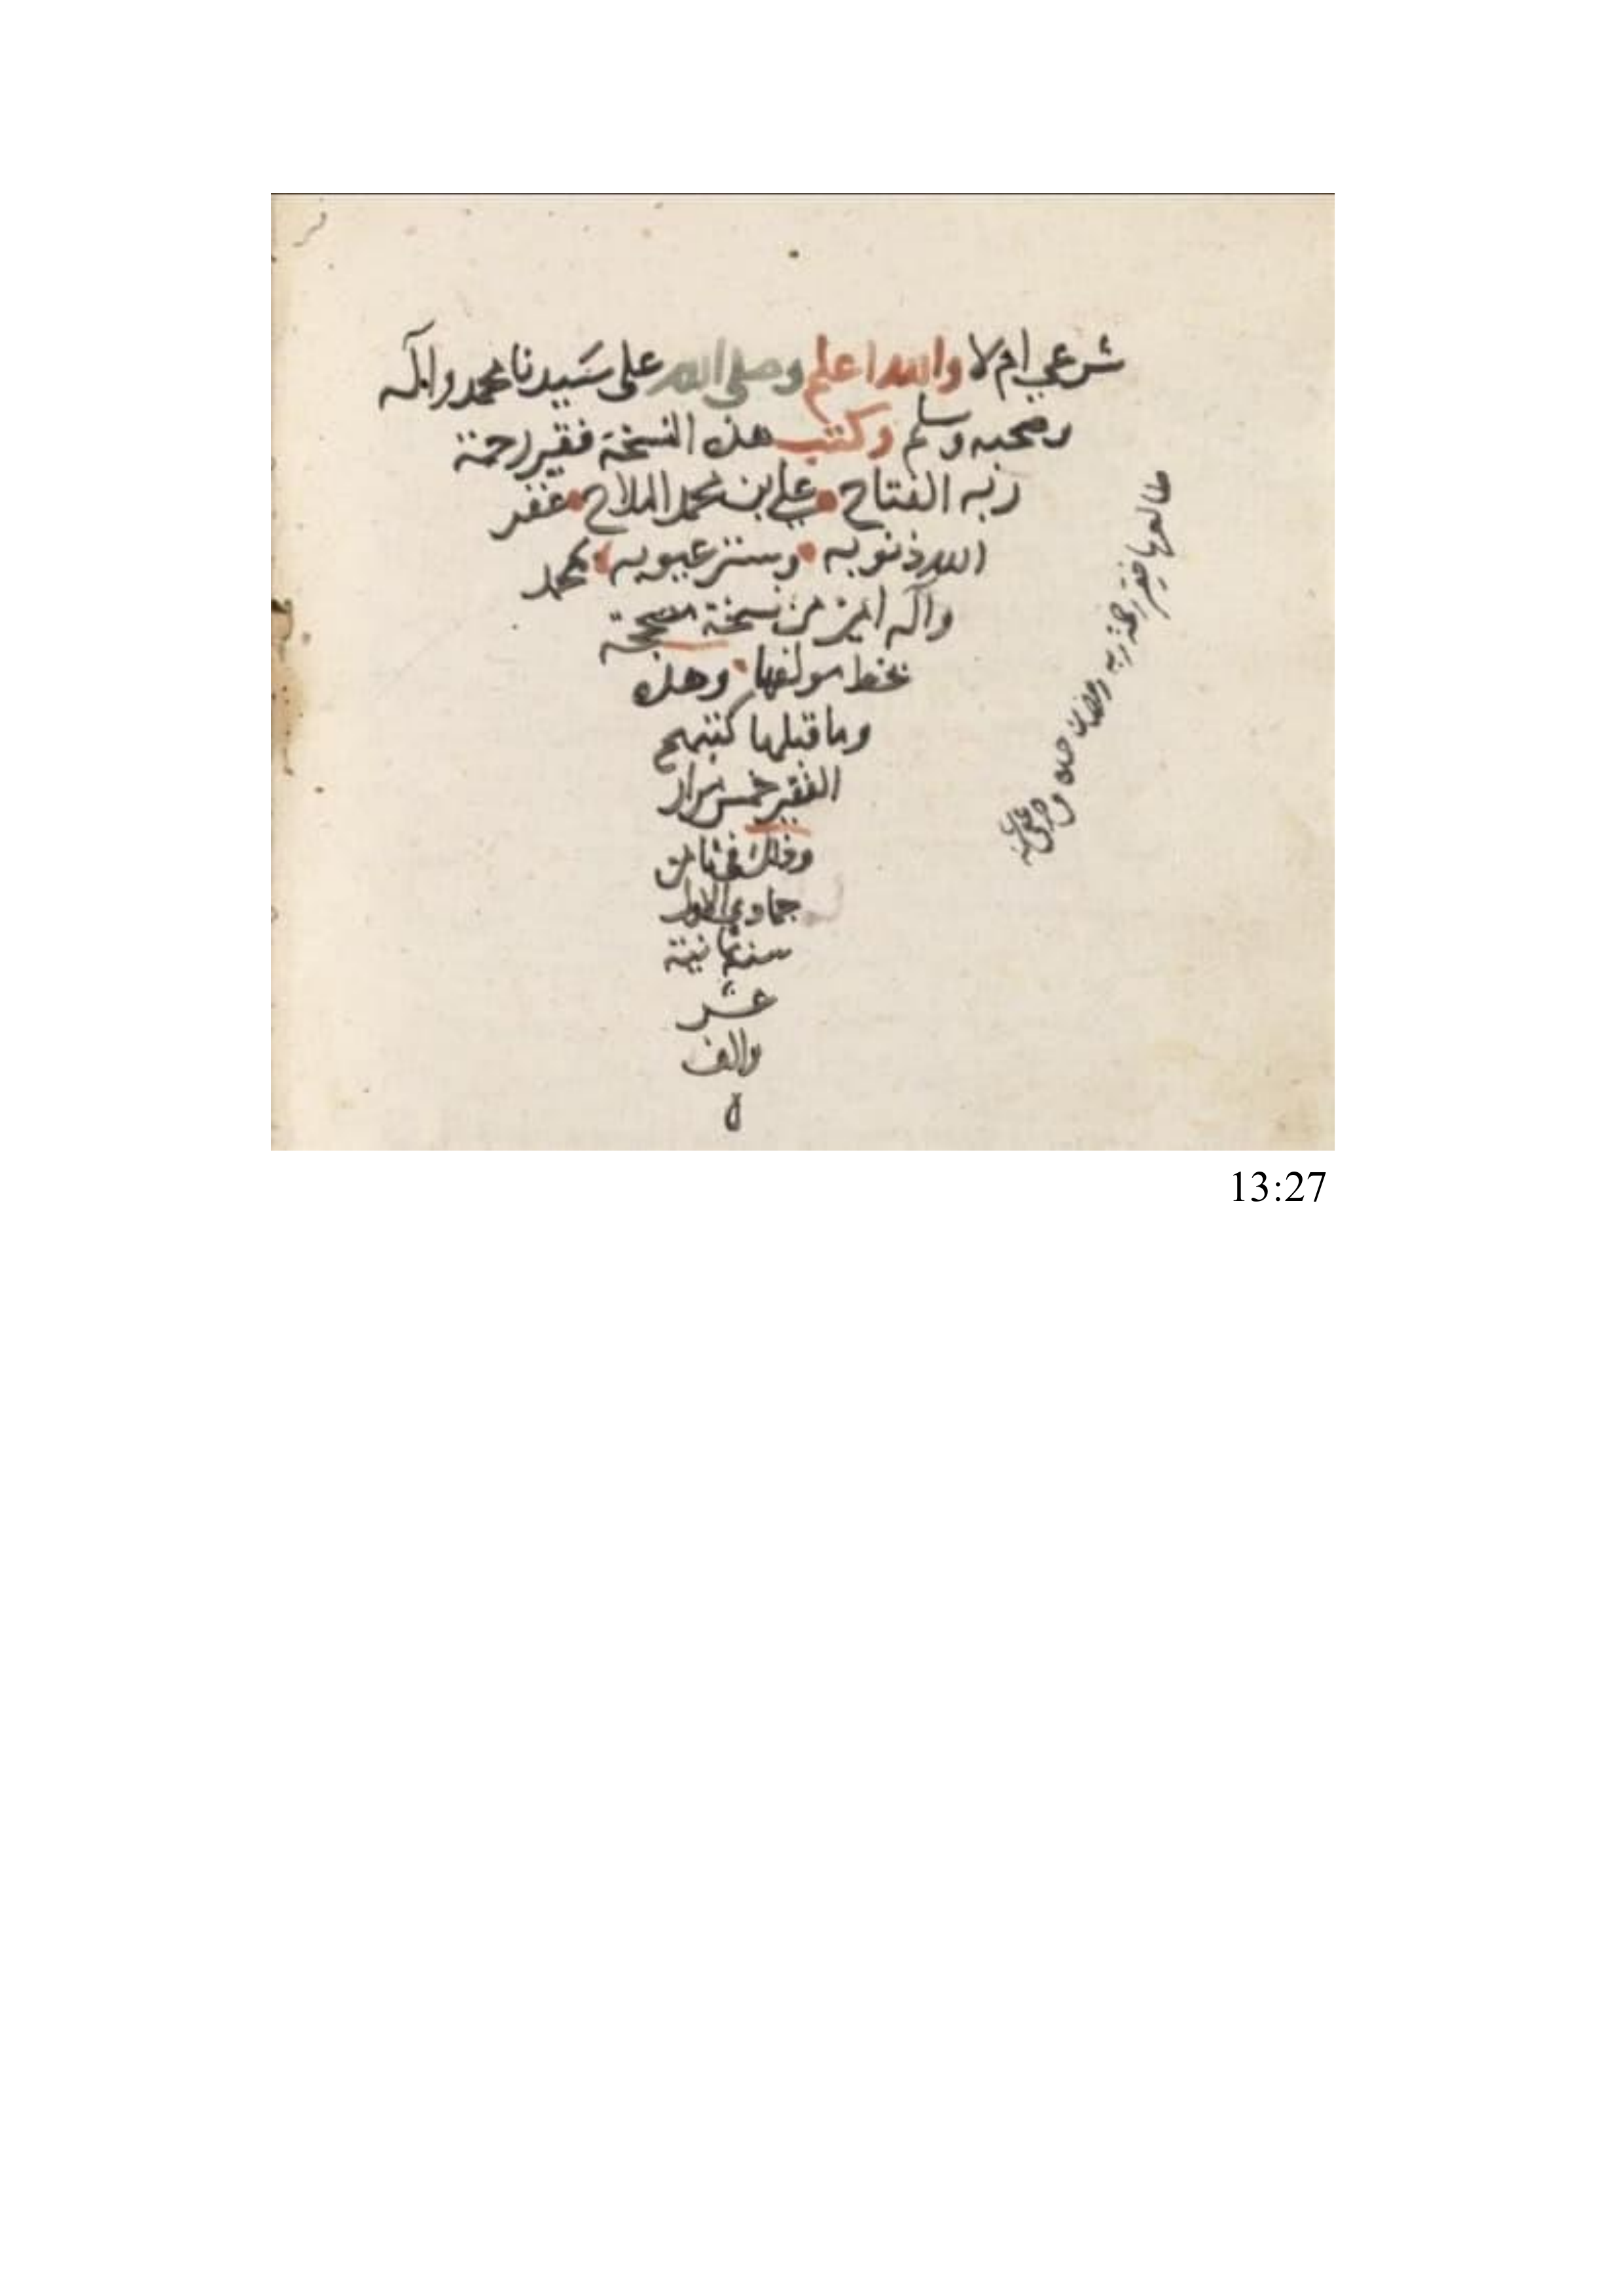 شرعي ام لا والله اعلم وصلى الله على سَيدنا محمد وآله
وصحبه وسلم وكتب هذه النسخة فقير رحمة
ربه الفتاح علي بن محمد الملاح غفر
الله ذنوبه وستر عيوبه بمحمد
وآله امين من نسخة مصححة
بخط مولفها وهذه
وما قبلها كتبهم
الفقير خمس مرار
وذلك في ثامن
جمادي الاول
سنة ثمانية
عشر
والف
طالعها فقير رحمة ربه رمضان
13:27